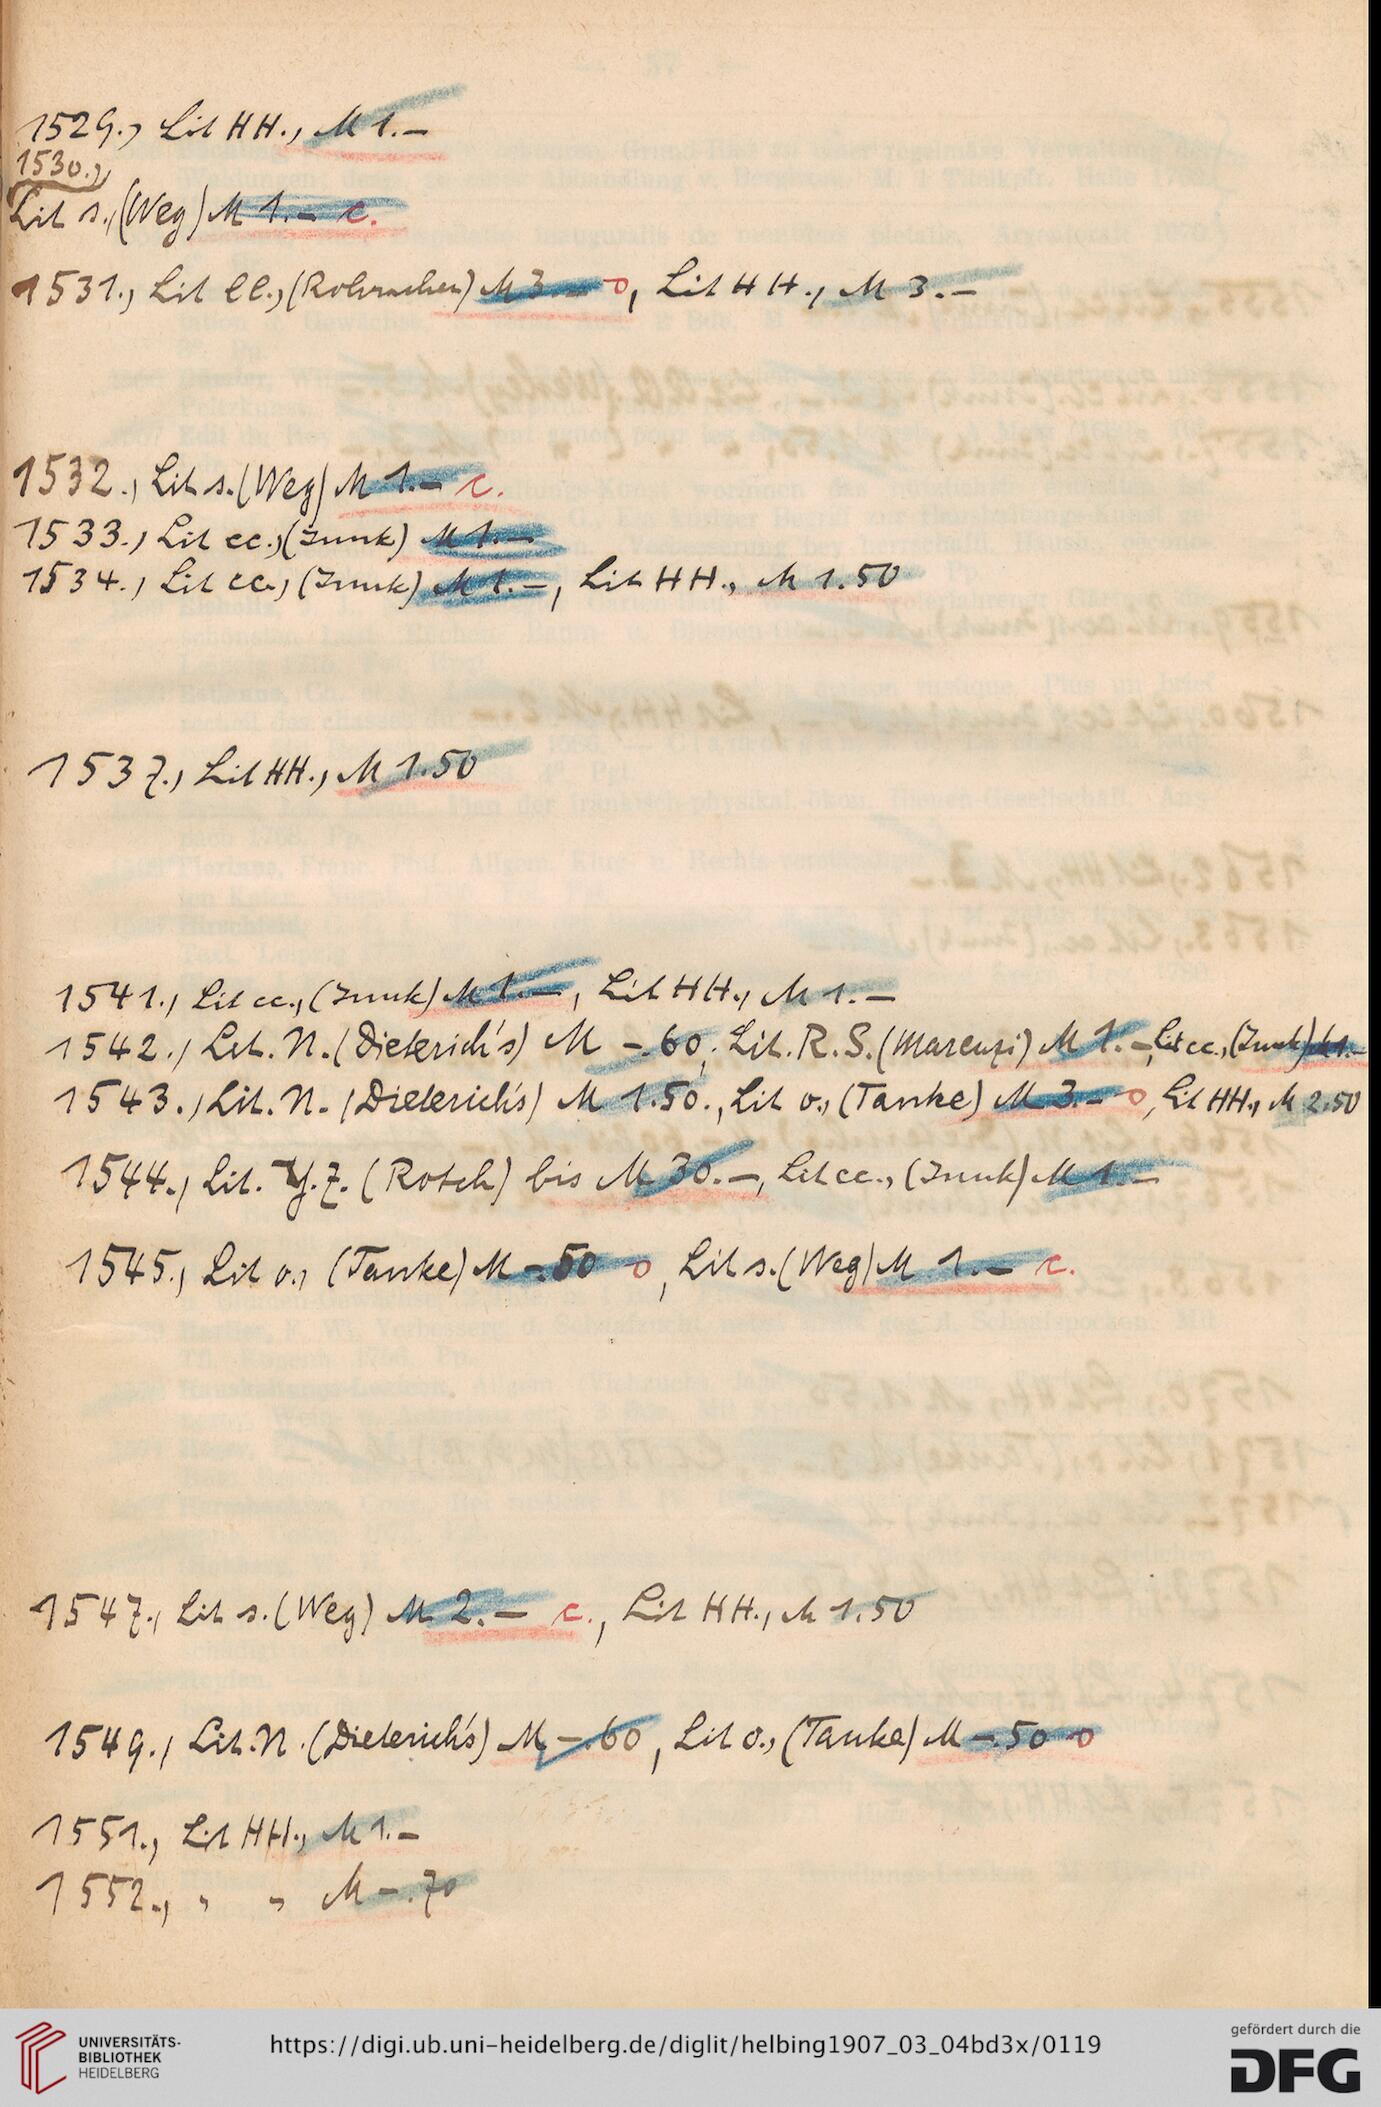 1529., Lit HH., M 1.–
1530.,
Lit s., (Weg) M 1.– c.
1531., Lit ll., (Rohracher) M 3.– o, Lit HH., M 3.–
1532., Lit s. (Weg) M 1.– c.
1533., Lit cc., (Junk) M 1.–
1534., Lit cc., (Junk) M 1.–, Lit HH., M 1.50
1537., Lit HH., M 1.50
1541., Lit cc., (Junk) M 1.–, Lit HH., M 1.–
1542., Lit. N. (Dieterich's) M –.60, Lit. R. S. (Marenzi) M 1.–, Lit cc., (Junk) M 1.–
1543., Lit. N. (Dieterich's) M 1.50., Lit o., (Tanke) M 3.– o, Lit HH., M 2.50
1544., Lit. Y. Z. (Rotch) bis M 30.–, Lit cc., (Junk) M 1.–
1545., Lit o., (Tanke) M –.50 o, Lit s. (Weg) M 1.– c.
1547., Lit s. (Weg) M 2.– c., Lit HH., M 1.50
1549., Lit. N. (Dieterich's) M –.60, Lit o., (Tanke) M –.50 o
1551., Lit HH., M 1.–
1552., " " M –.70
UNIVERSITÄTS-
BIBLIOTHEK
HEIDELBERG
https://digi.ub.uni-heidelberg.de/diglit/helbing1907_03_04bd3x/0119
gefördert durch die
DFG